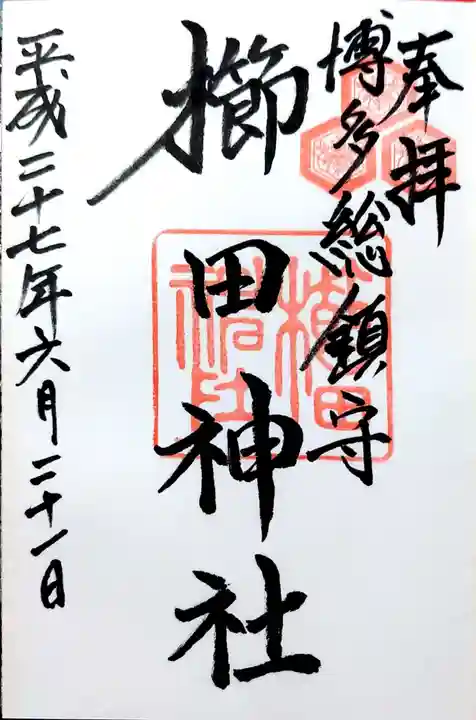 奉拝
博多総鎮守
櫛田神社
櫛田神社
平成二十七年六月二十一日